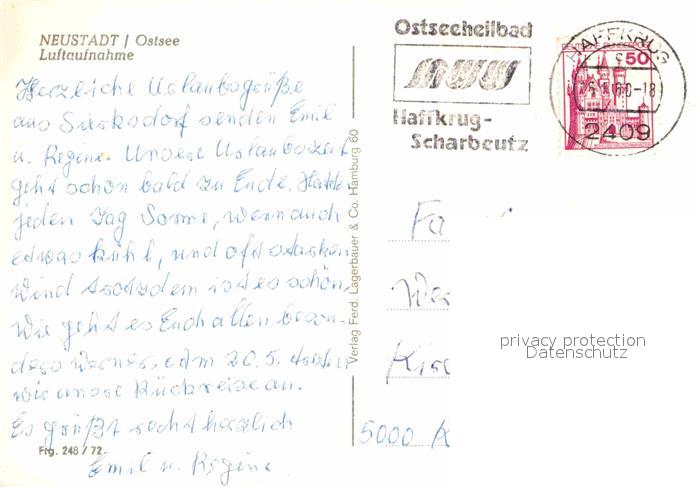 NEUSTADT / Ostsee
Luftaufnahme
Herzliche Urlaubsgrüße
aus Sierksdorf senden Emil
u. Regine. Unsere Urlaubszeit
geht schon bald zu Ende. Hatten
jeden Tag Sonne, wenn auch
etwas kühl, und oft starken
Wind trotzdem ist es schön.
Wie geht es Euch allen beson-
ders Werner. Am 20.5. treten
wir unsere Rückreise an.
Es grüßt recht herzlich
Emil u. Regine
Ftg. 248/72
Verlag Ferd. Lagerbauer & Co. Hamburg 60
Ostseeheilbad
Haffkrug-
Scharbeutz
HAFFKRUG
50
-18
2409
Fa
Wer
Kirc
5000 K
privacy protection
Datenschutz